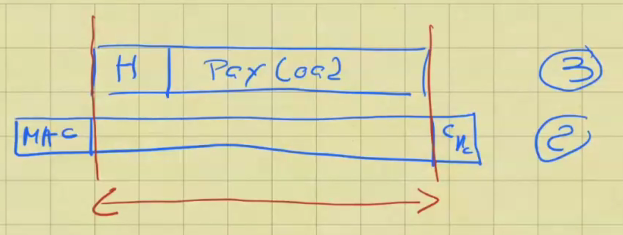 H PayLoad 3
MAC CRC 2